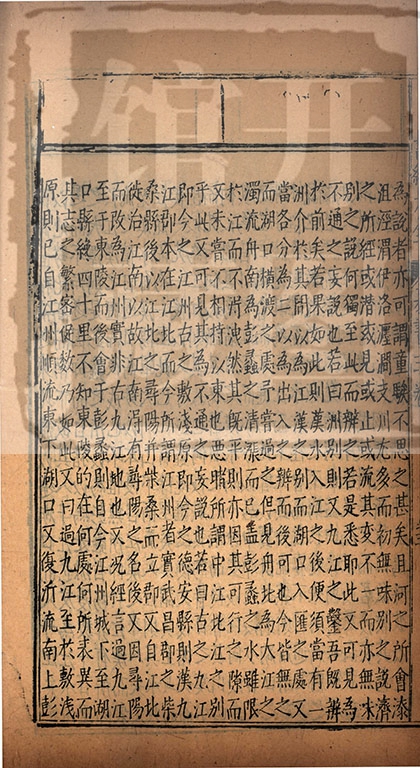 為說者亦可謂童騃不思之甚矣且河之所會漆
沮涇渭伊洛瀍澗支川尤多而初無味別之說濟
之所經或潛或見或止或流其變不一而初無味
別之說何獨至此而辨之若是悉耶此又可見其為
不通之妄說也若曰洲別則又九江之鑿吾既辨
於前矣若果如此則漢水入江之後便須當有一
洲介於其間以為江漢之別而湖口入匯之處又
當各分為二以為出入之辨而後可也今皆無之
而湖口橫渡之處予嘗過之但見舟北為大江之
濁流舟南為彭蠡之清漲而已蓋彭蠡之水雖限
於江而不得洩然其既平則亦因其可行之隙而
又未嘗不相持以東也惡睹所謂中江北江之別
乎此又可見其為不通之妄說也若曰古之九江
即今之江州古之敷淺原即今德安縣則漢九
江郡本在江北而今所謂江州者實武昌郡之柴
桑縣後以江北之尋陽并柴桑而立郡又自江北
徙治江南故江南得有尋陽之名後又因尋陽
而改為江州實非古九江地也又況經言過九江
至于東陵而後會于彭蠡則自今江州城下至湖
口縣纔四十里不知東陵的在何處何所表異而
其志之繁密促數乃如此又曰過九江至於敷淺
原則已自江州順流東下湖口又復泝流南上彭